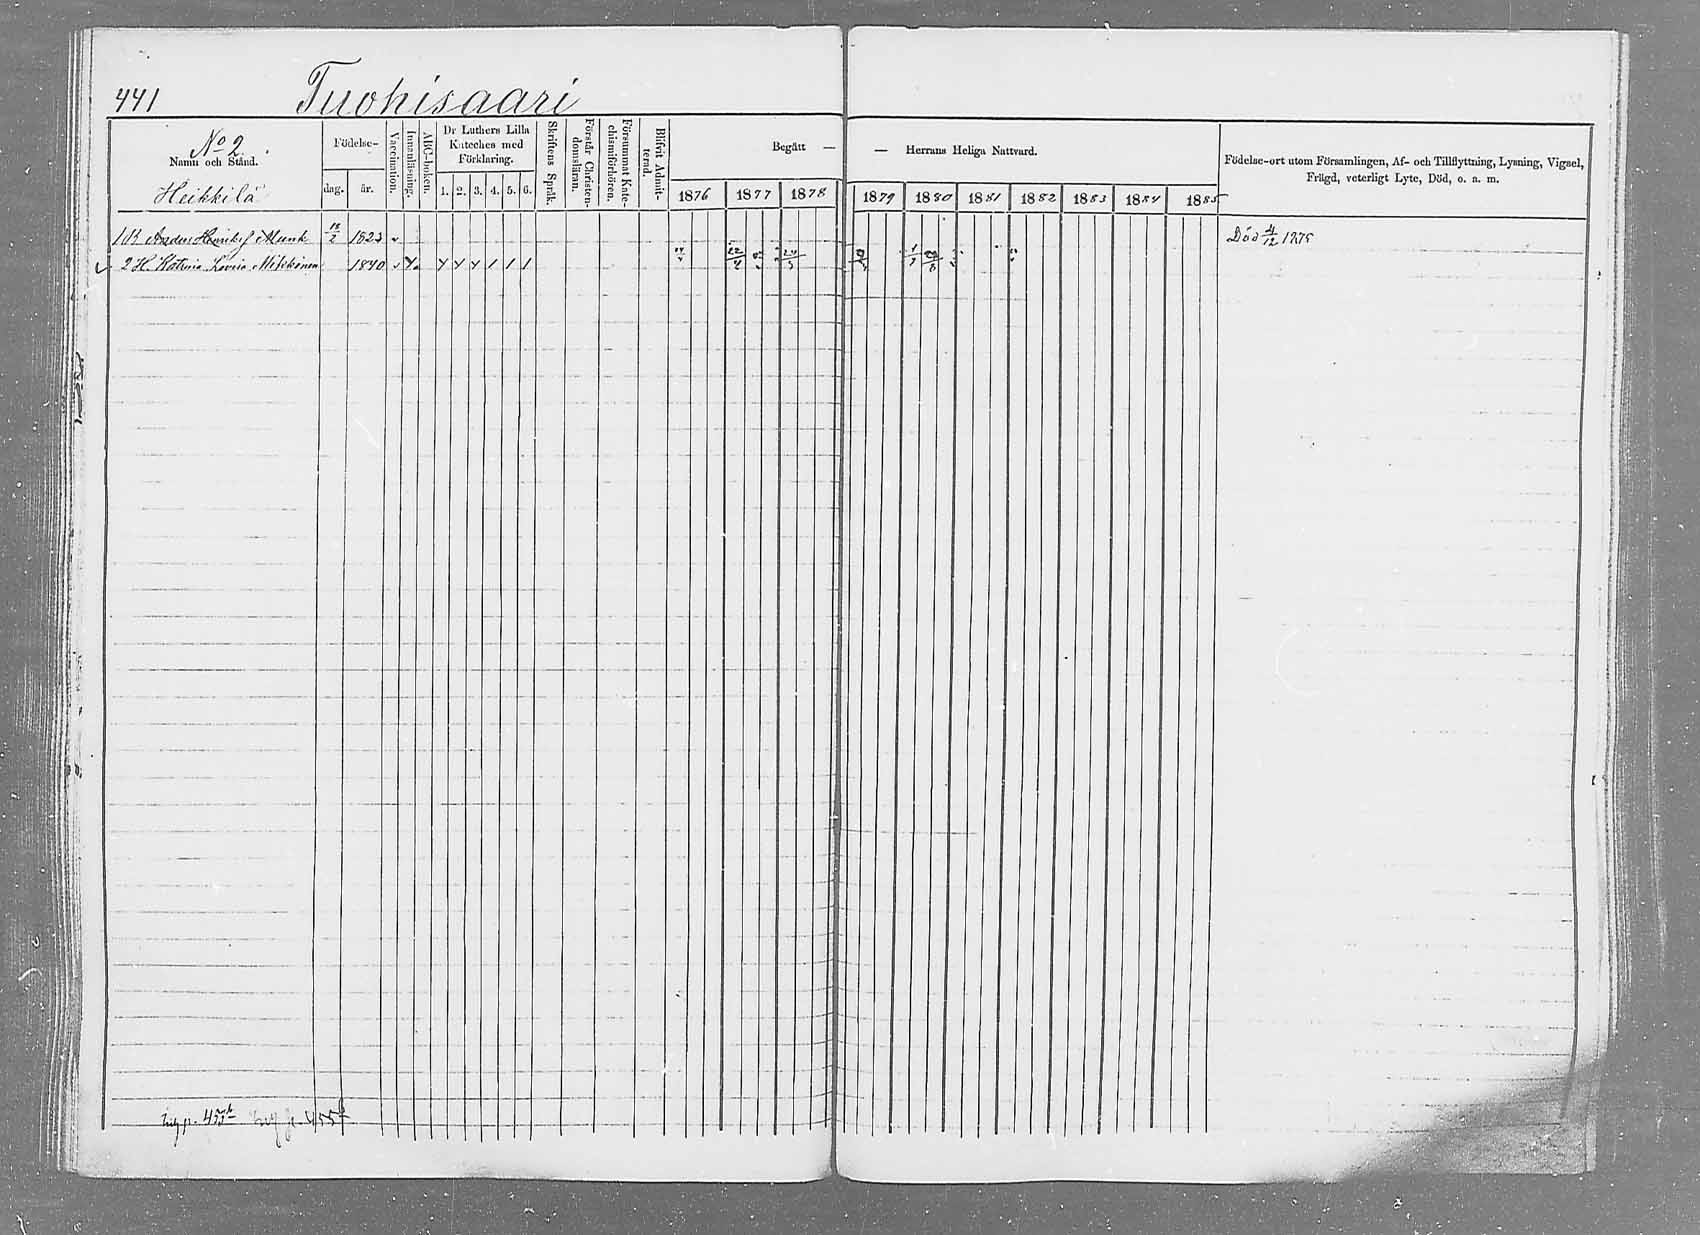 441 Tuohisaari
No 2
Namn och Stånd.
Heikkilä
Födelse-
dag. år.
Vaccination.
Innanläsning.
ABC-boken.
Dr Luthers Lilla
Kateches med
Förklaring.
1. 2. 3. 4. 5. 6.
Skriftens Språk.
Förstår Christen-
domsläran.
Försummat Kate-
chismiförhören.
Blifvit Admit-
terad.
Begått — — Herrans Heliga Nattvard.
1876 1877 1878 1879 1880 1881 1882 1883 1884 1885
Födelse-ort utom Församlingen, Af- och Tillflyttning, Lysning, Vigsel,
Frägd, veterligt Lyte, Död, o. a. m.
1 Anders Munk 1823 Död 4/12 1875
2 H. Katrina Lovisa 1840